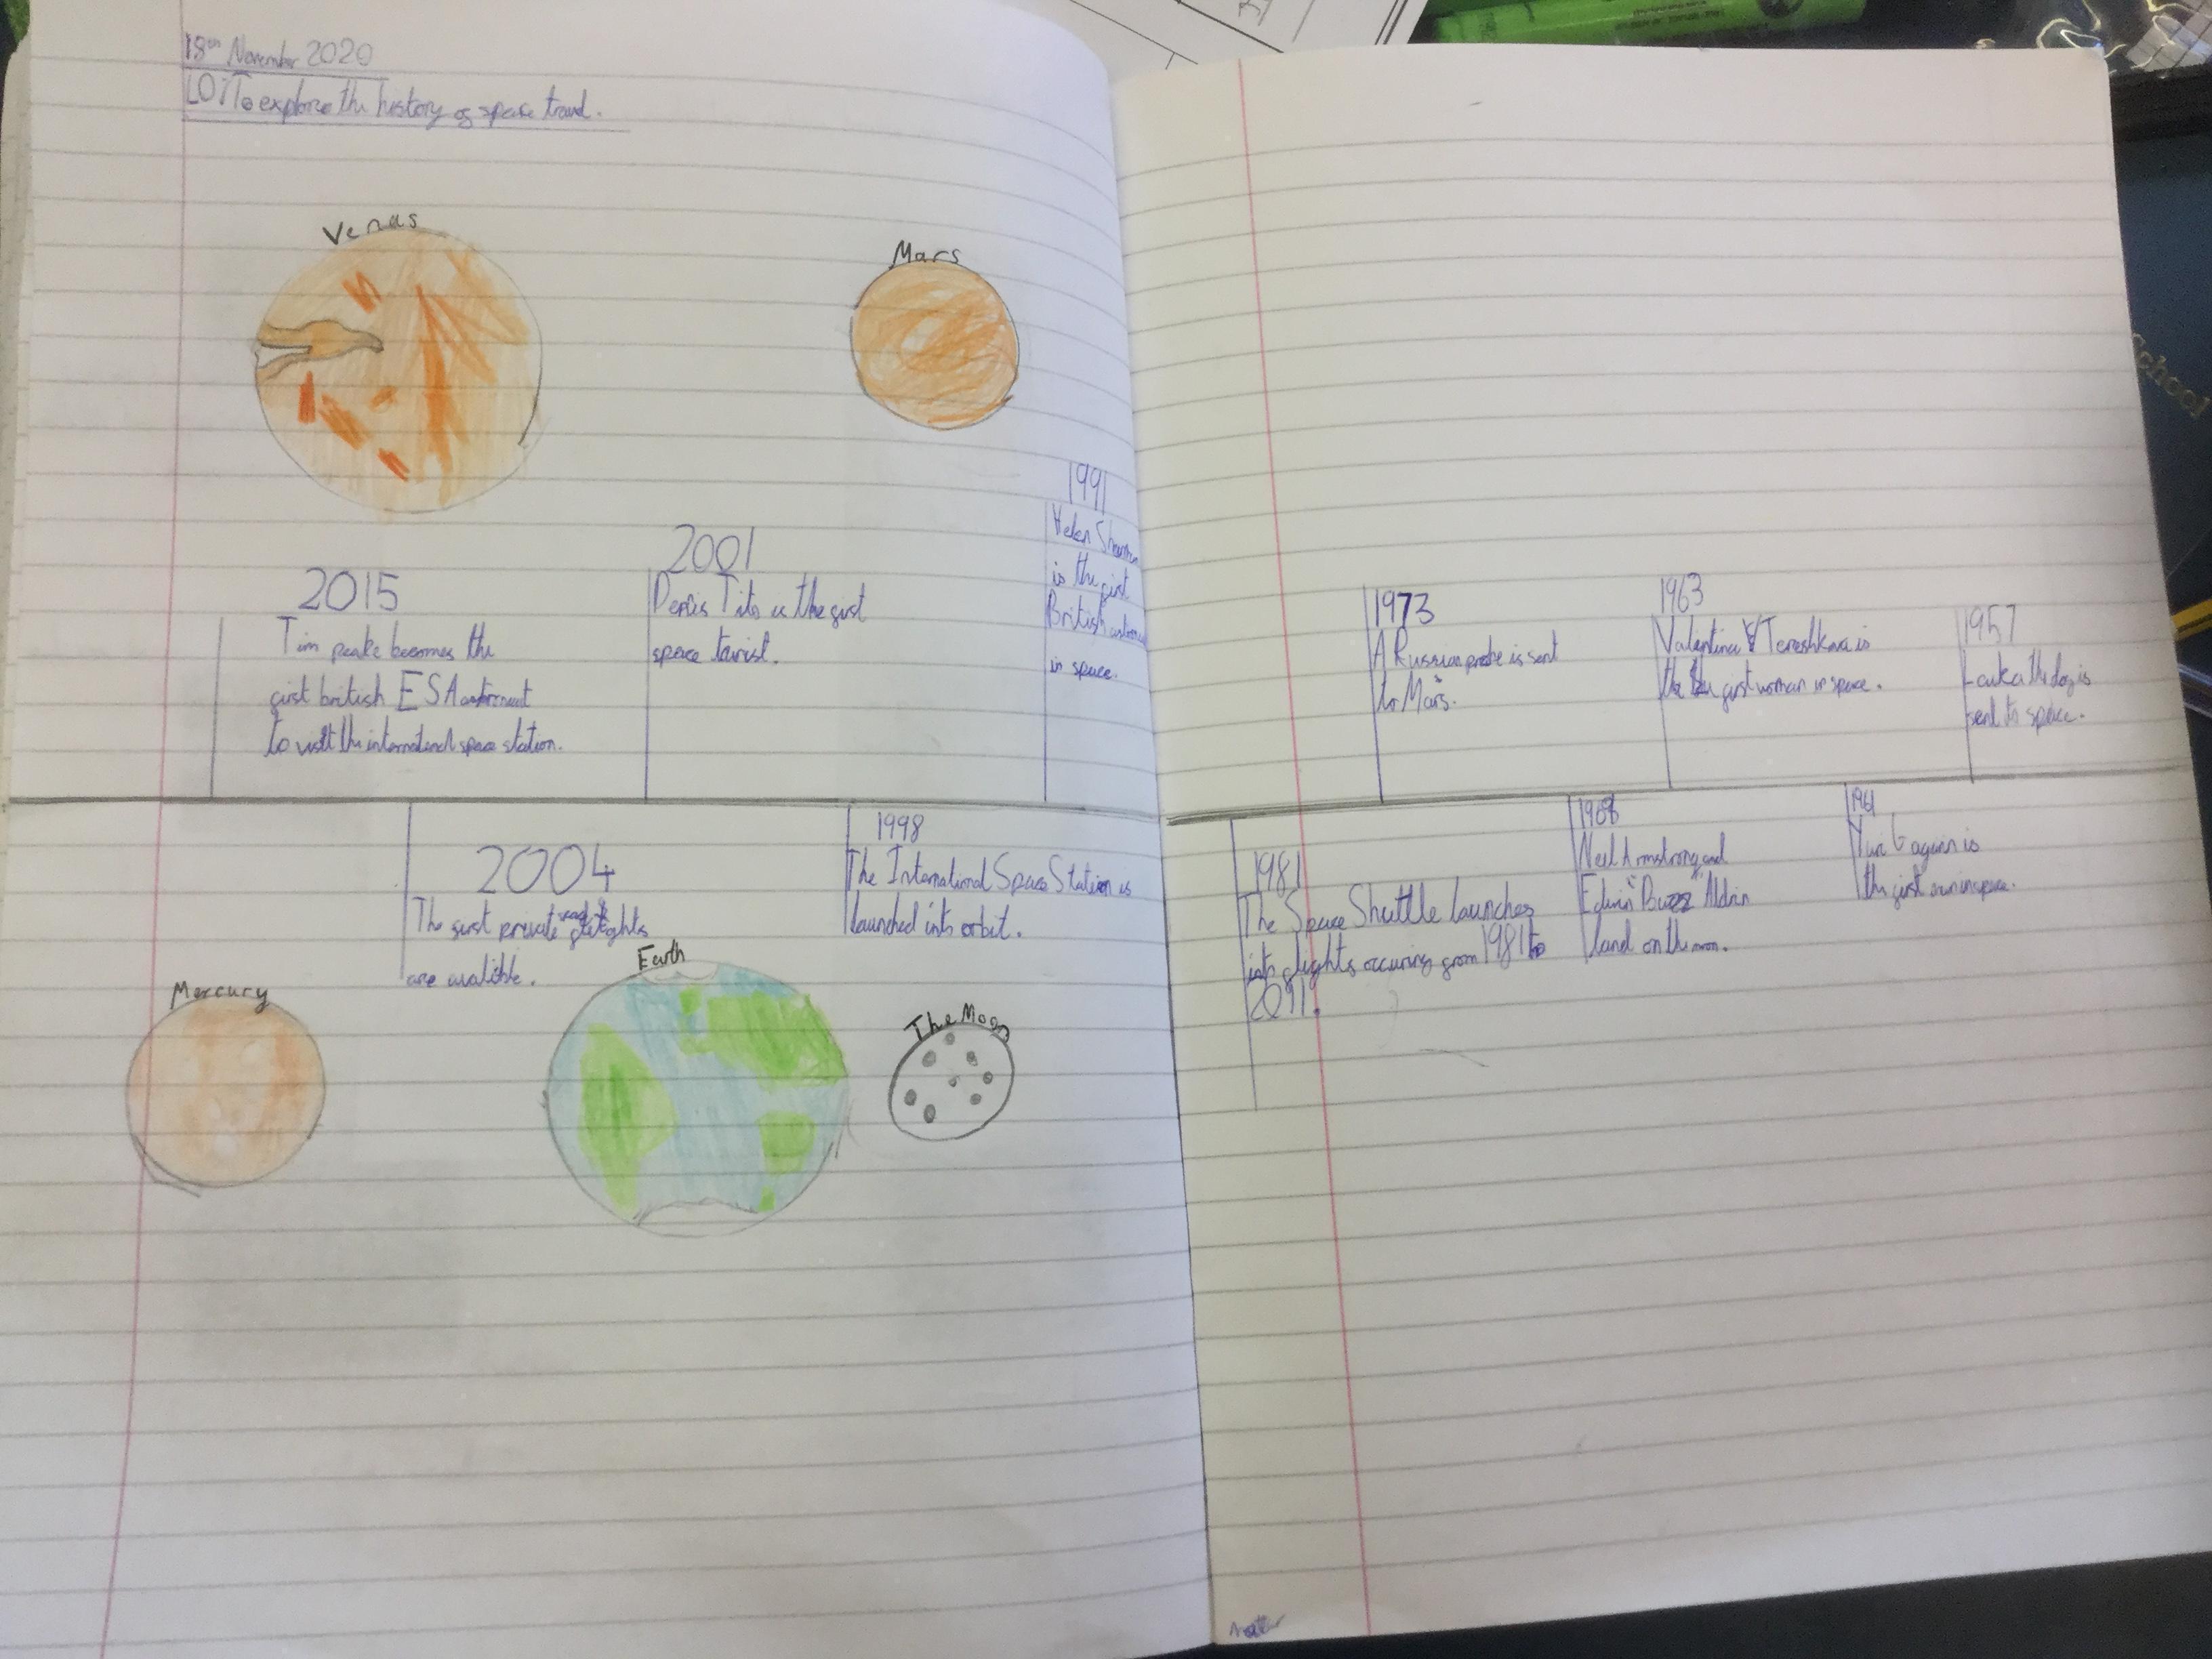 18th November 2020
LO: To explore the history of space travel.
Venus
Mars
2015
Tim peake becomes the
first british ESA astronaut
to visit the international space station.
2001
Denis Tito is the first
space tourist.
1991
Helen Sharman
is the first
British astronaut
in space.
2004
The first private space flights
are availible.
1998
The International Space Station is
launched into orbit.
Mercury
Earth
The Moon
1973
A Russian probe is sent
to Mars.
1963
Valentina Tereshkova is
the first woman in space.
1957
Laika the dog is
sent to space.
1981
The Space Shuttle launches
into flights occuring from 1981 to
2011.
Neil Armstrong and
Edwin "Buzz" Aldrin
land on the moon.
1961
Yuri Gagarin is
the first man in space.
School